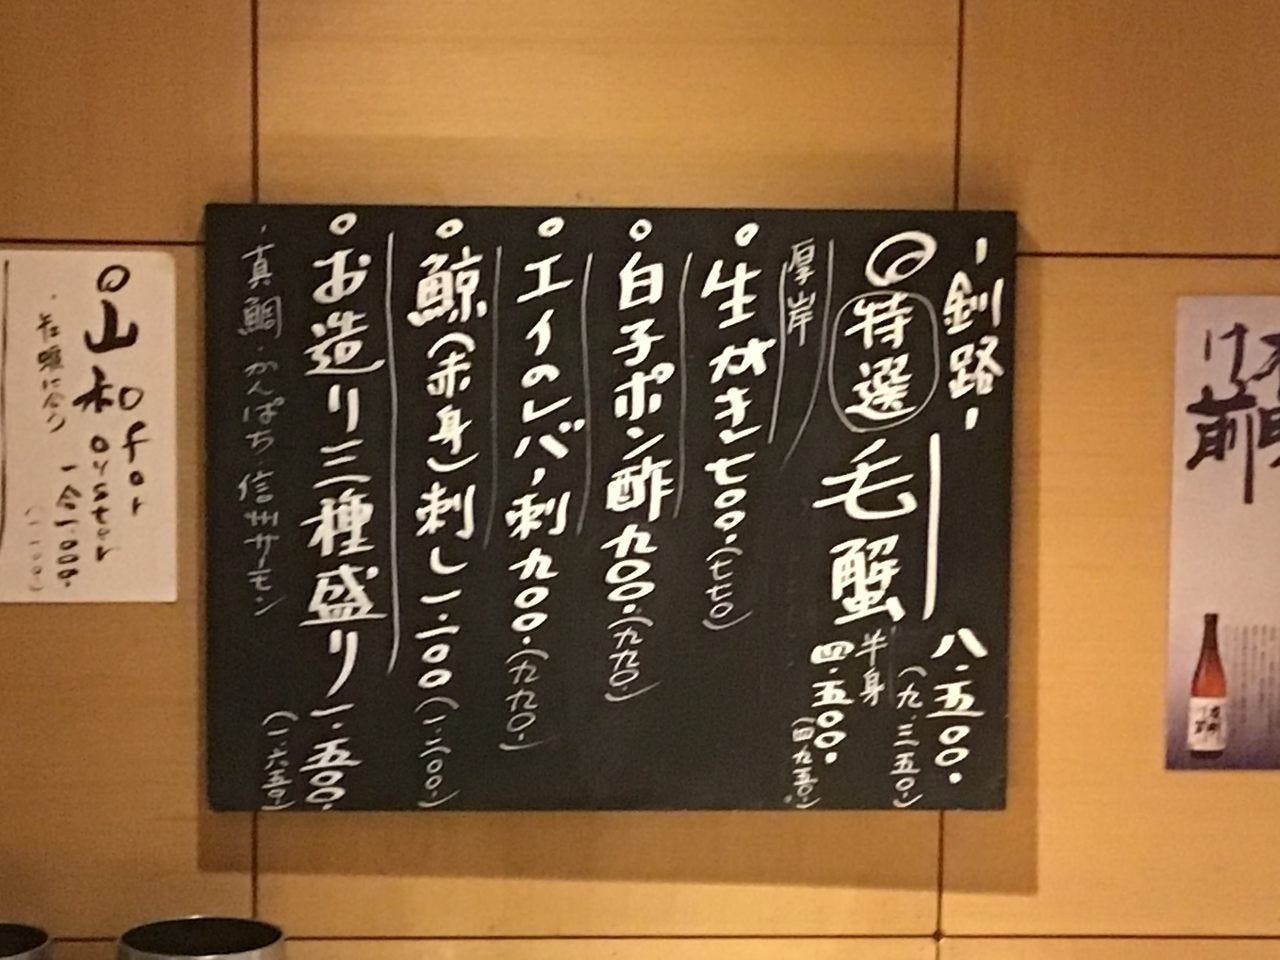 -釧路-
特選 毛蟹
八.五〇〇.
(九.三五〇.)
半身
四.五〇〇.
(四.九五〇.)
厚岸
生がき 七〇〇.(七七〇)
白子ポン酢 九〇〇.(九九〇.)
エイのレバ刺 九〇〇.(九九〇.)
鯨(赤身)刺し 一.二〇〇
お造り三種盛り 一.五〇〇.
(一.六五〇.)
・真鯛・かんぱち 信州サーモン
山和 for oyster
一合 1.000.
(1.100)